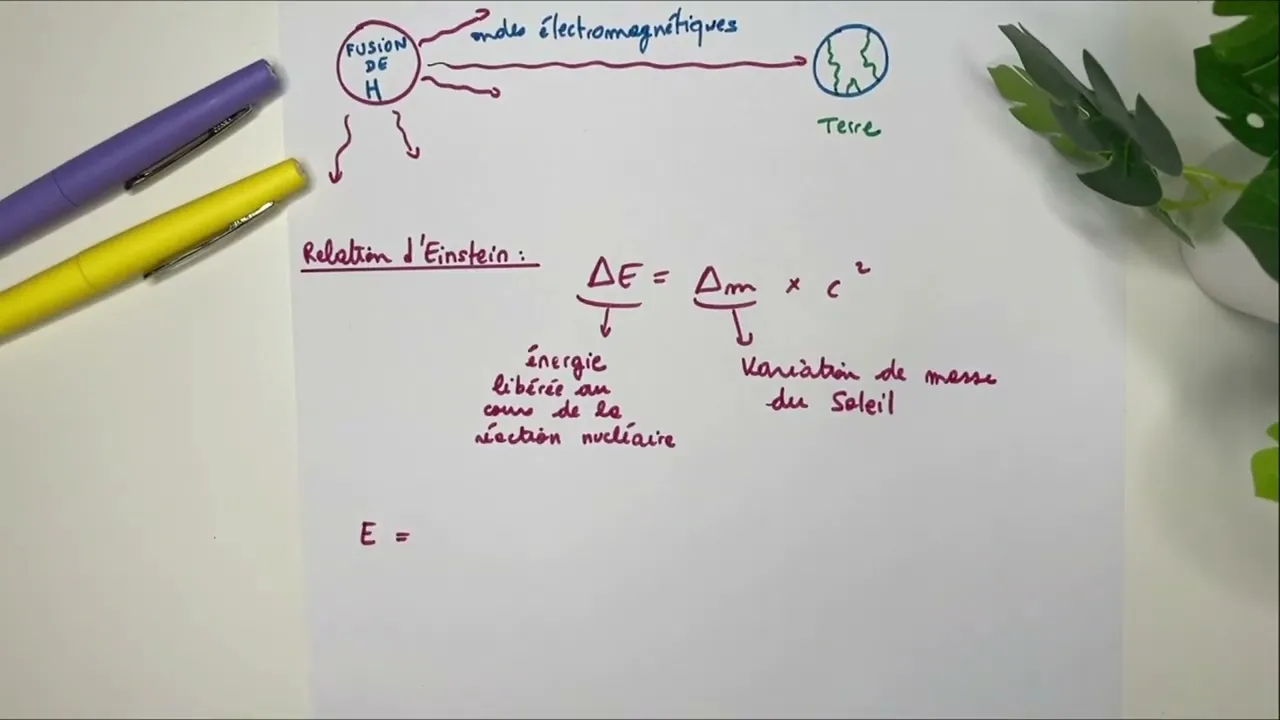 FUSION
DE
H
ondes électromagnétiques
Terre
Relation d'Einstein :
ΔE = Δm × c²
énergie
libérée au
cours de la
réaction nucléaire
Variation de masse
du Soleil
E =